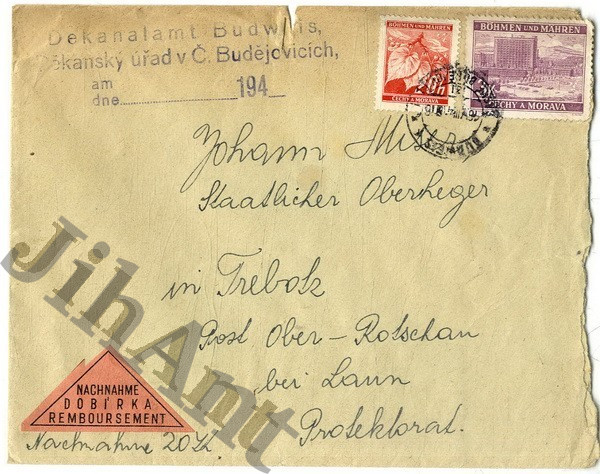 Dekanalamt Budweis,
Děkanský úřad v Č. Budějovicích,
am
dne 194
BÖHMEN UND MÄHREN
20h
ČECHY A MORAVA
BÖHMEN UND MÄHREN
ČECHY A MORAVA
Johann
Staatlicher Oberheger
in Trebotz
Post Ober-Rotschau
bei Laun
Protektorat.
NACHNAHME
DOBÍRKA
REMBOURSEMENT
Nachnahme 20
JihAnt